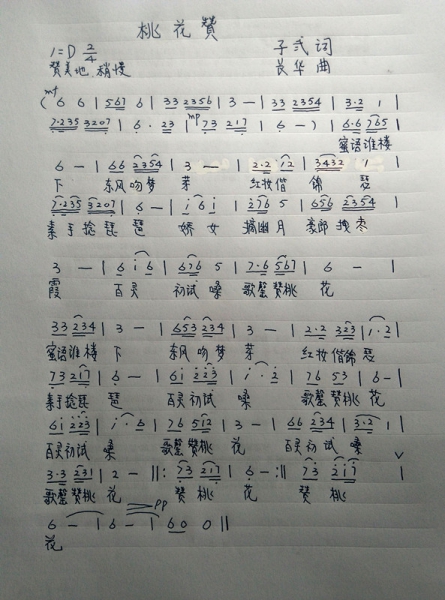 桃花赞
1=D 2/4 子弍词
赞美地 稍慢 长华 曲
mf
( 6 6 | 567 6 | 33 2356 | 3 — | 33 2354 | 3·2 1 |
7·235 3207 | 6 · 23 | mp 73 217 | 6 — ) | 6·6 765 |
蜜语谁楼
6 — | 66 2354 | 3 — | 2·2 12 | 3432 1 |
下 东风吻梦 芽 红妆偕 锦 瑟
7·235 3207 | 6 — | i 6 i | 276 5 | 656 2354 |
素手捻琵 琶 娇女 摘幽月 豪郎 枣
3 — | 6 i 6 | 676 5 | 7·6 567 | 6 — |
霞 百灵 初试 嗓 歌鳌赞桃 花
33 234 | 3 — | 653 234 | 3 — | 2·2 323 | 1·2 |
蜜语谁楼 下 东风吻梦 芽 红妆偕锦 瑟
73 217 | 6 — | 6i 223 | i · 2 | 76 53 | 6 — |
素手捻琵 琶 百灵初试 嗓 歌鳌赞桃花
6i 223 | i · 6 | 76 512 | 3 — | 66 234 | 3·2 1
百灵初试 嗓 歌鳌赞桃 花 百灵初试 嗓
3·3 231 | 2 — ||: 73 217 | 6 — :|| 73 217 |
歌鳌赞桃 花 赞桃 花 赞桃
pp
6 — | 6 — | 60 0 ||
花